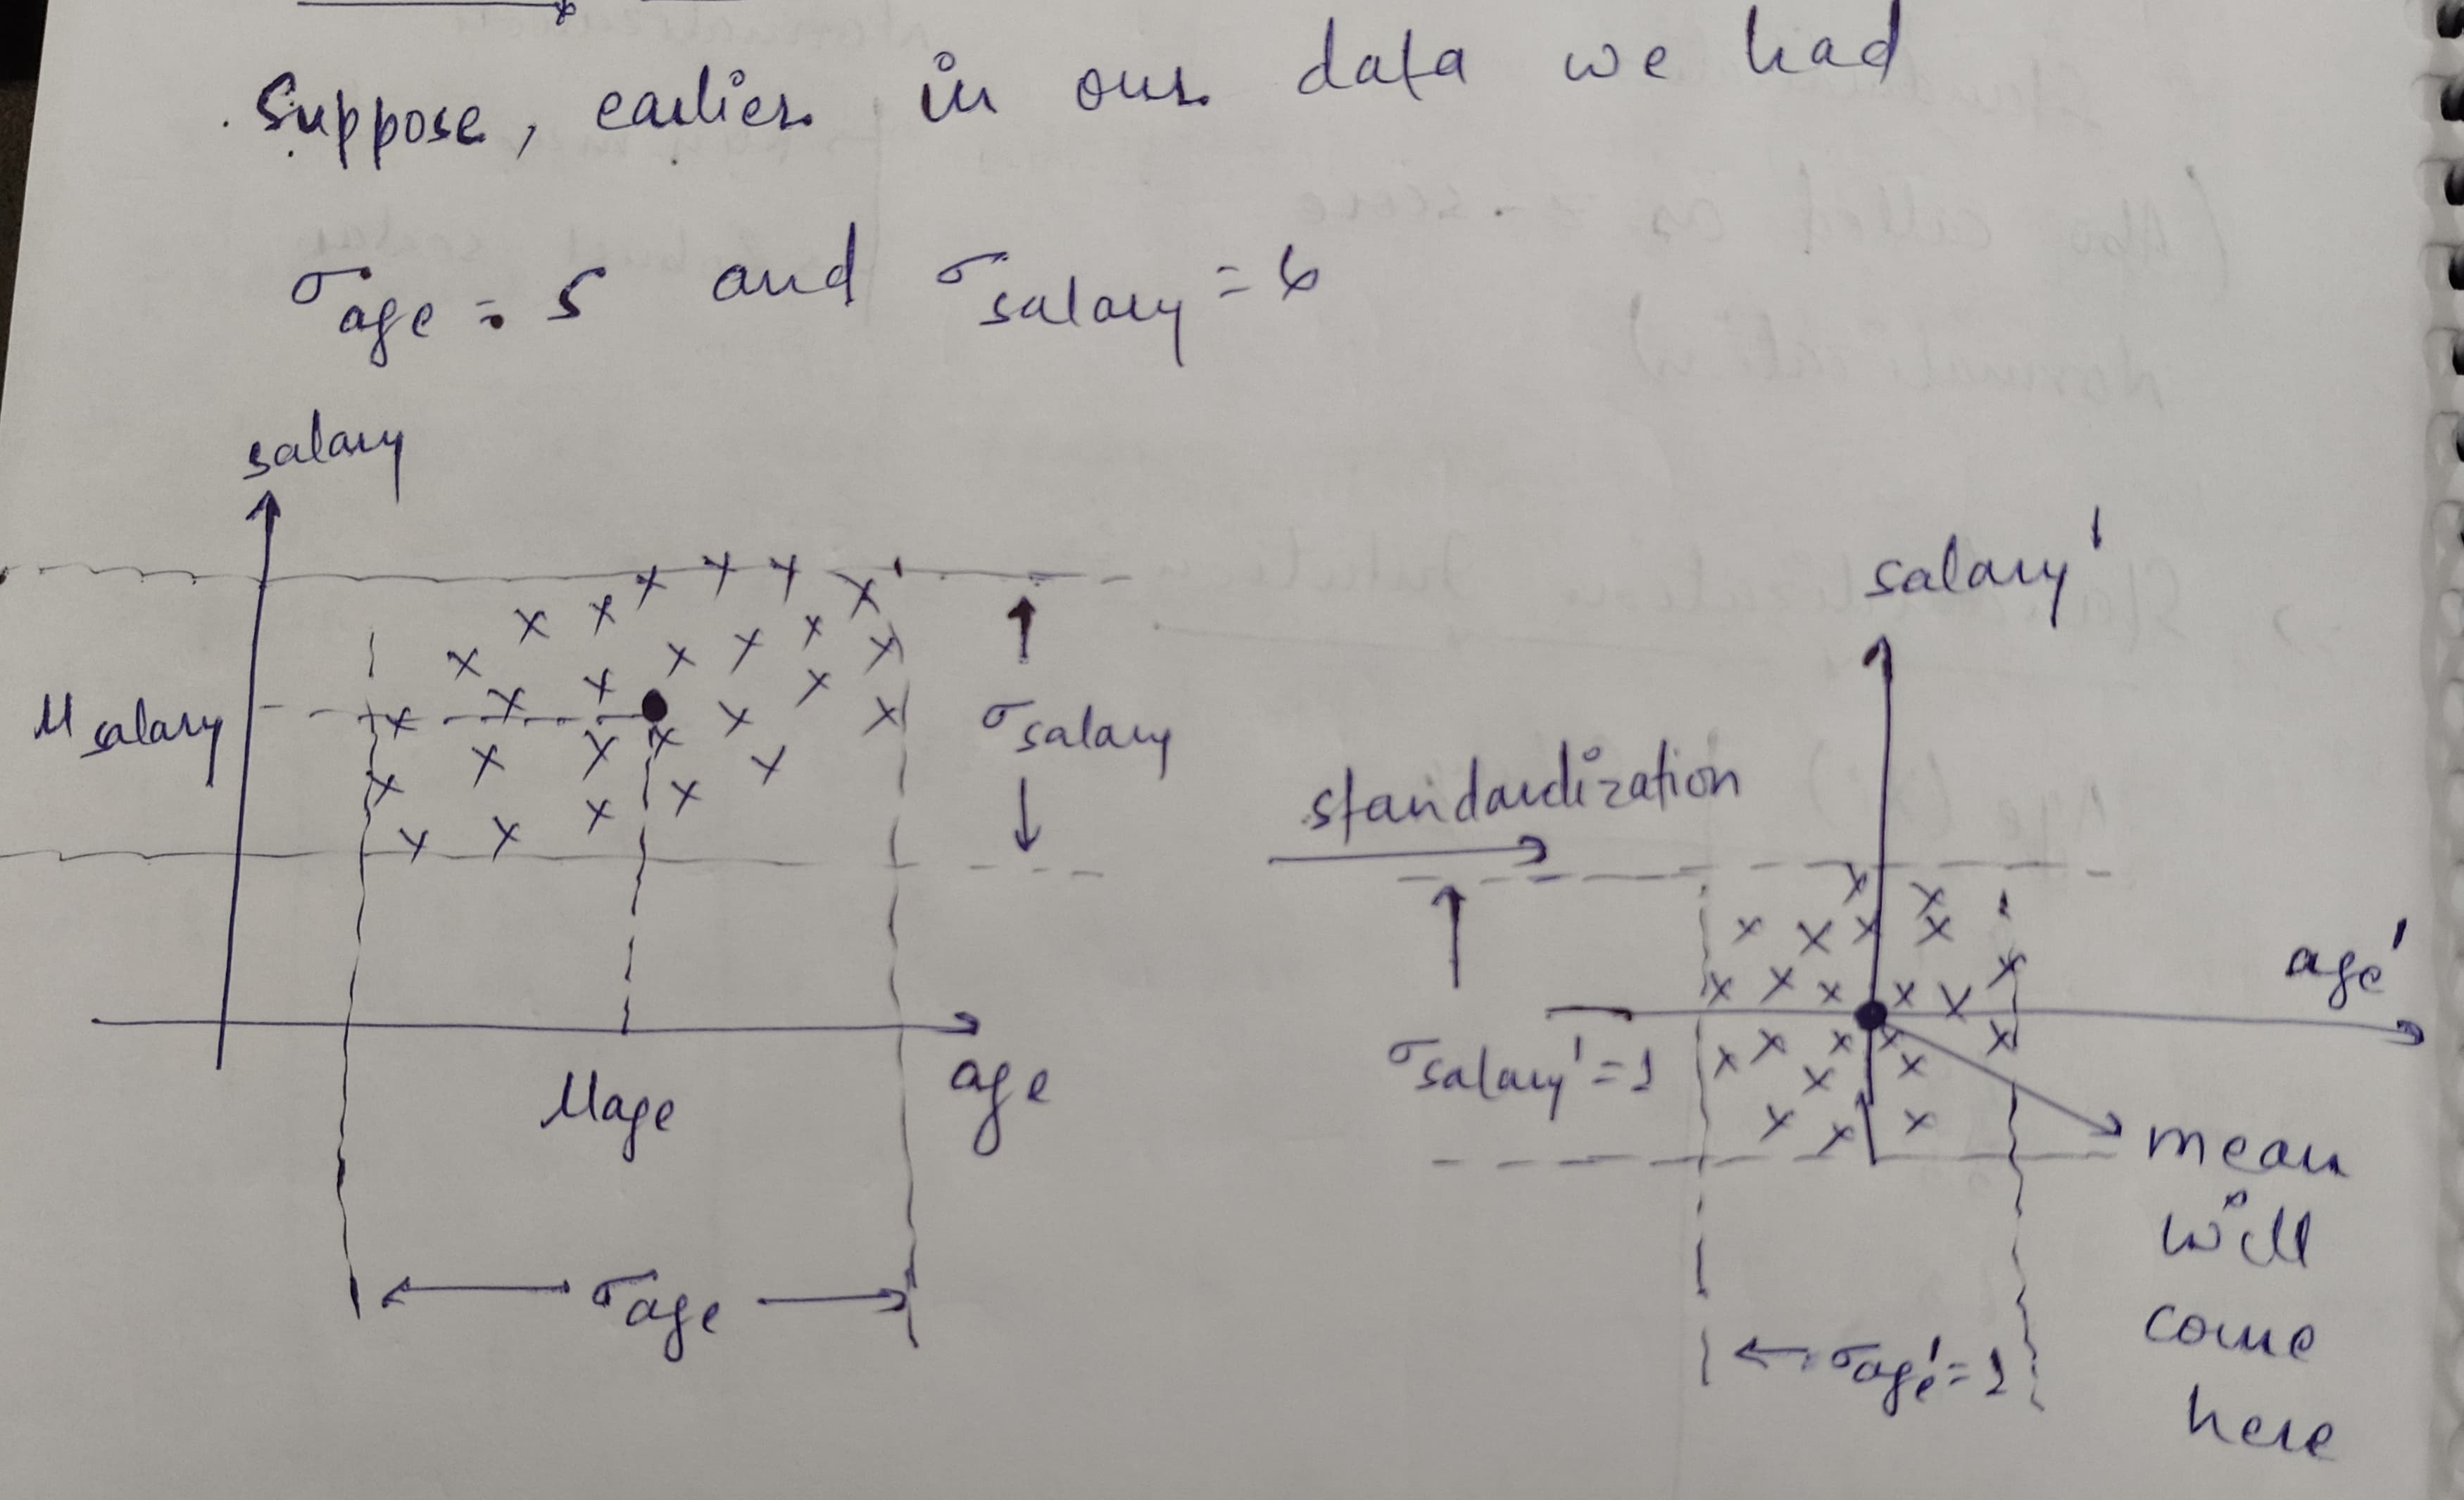 . Suppose, earlier in our data we had
σage = 5 and σsalary = 6
salary
μsalary
σsalary
μage
age
σage
standardization
salary'
age'
σsalary' = 1
mean
will
come
here
σage' = 1